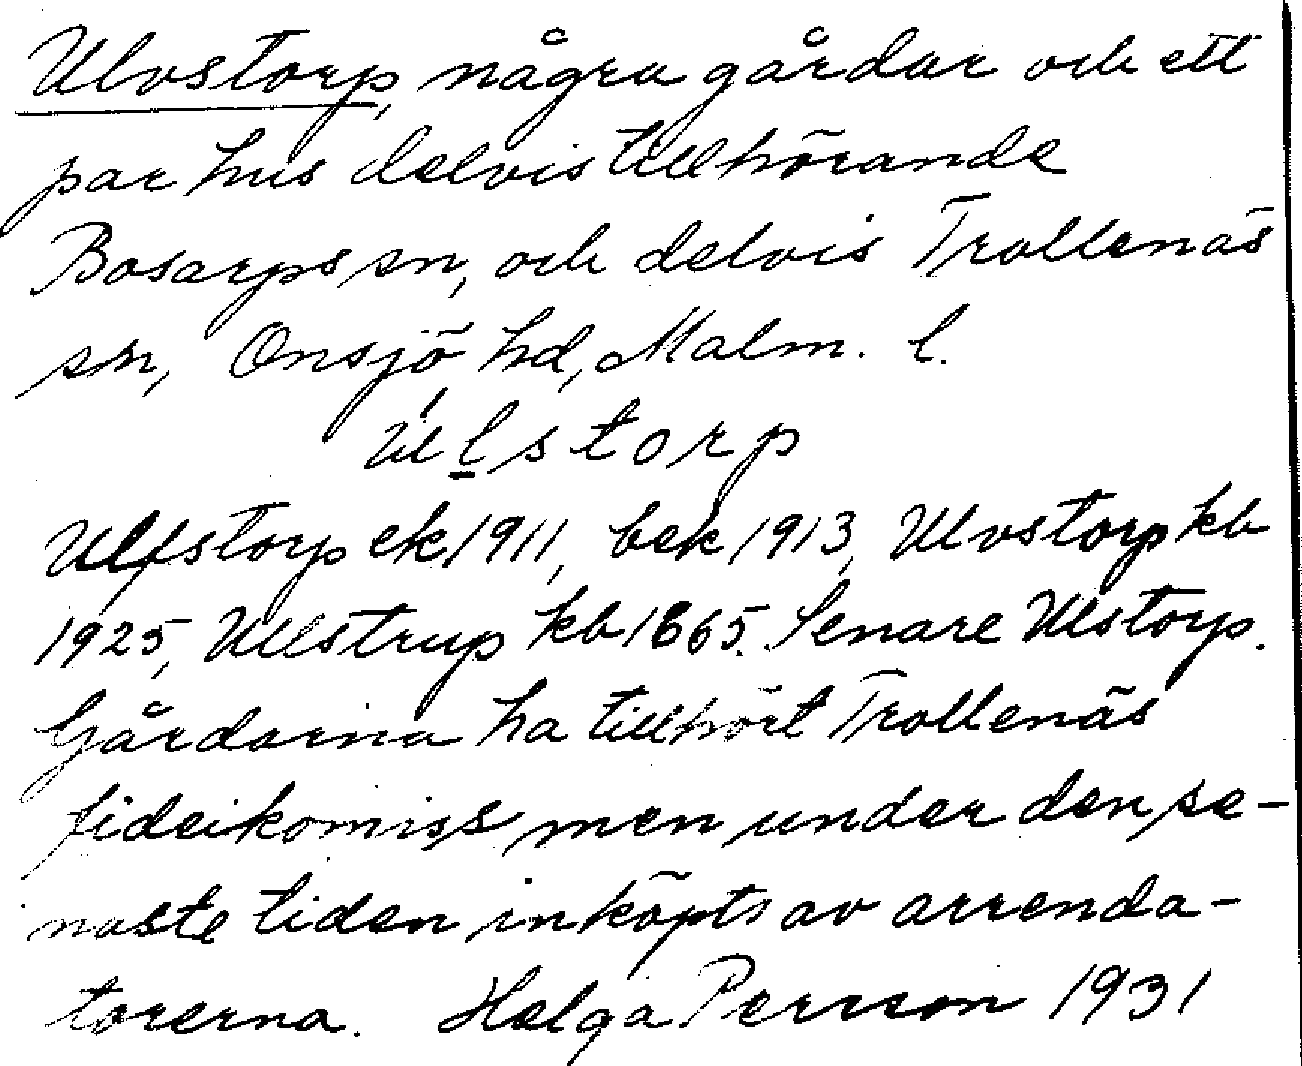 Ulvstorp, några gårdar och ett
par hus delvis tillhörande
Bosarps sn, och delvis Trollenäs
sn, Onsjö hd, Malm. l.
úlstorp
Ulfstorp ek 1911, bek 1913, Ulvstorp kb
1925, Ullstrup kb 1865. Senare Ulstorp.
Gårdarna ha tillhört Trollenäs
fideikomiss men under den se-
naste tiden inköpts av arrenda-
torerna. Helga Persson 1931